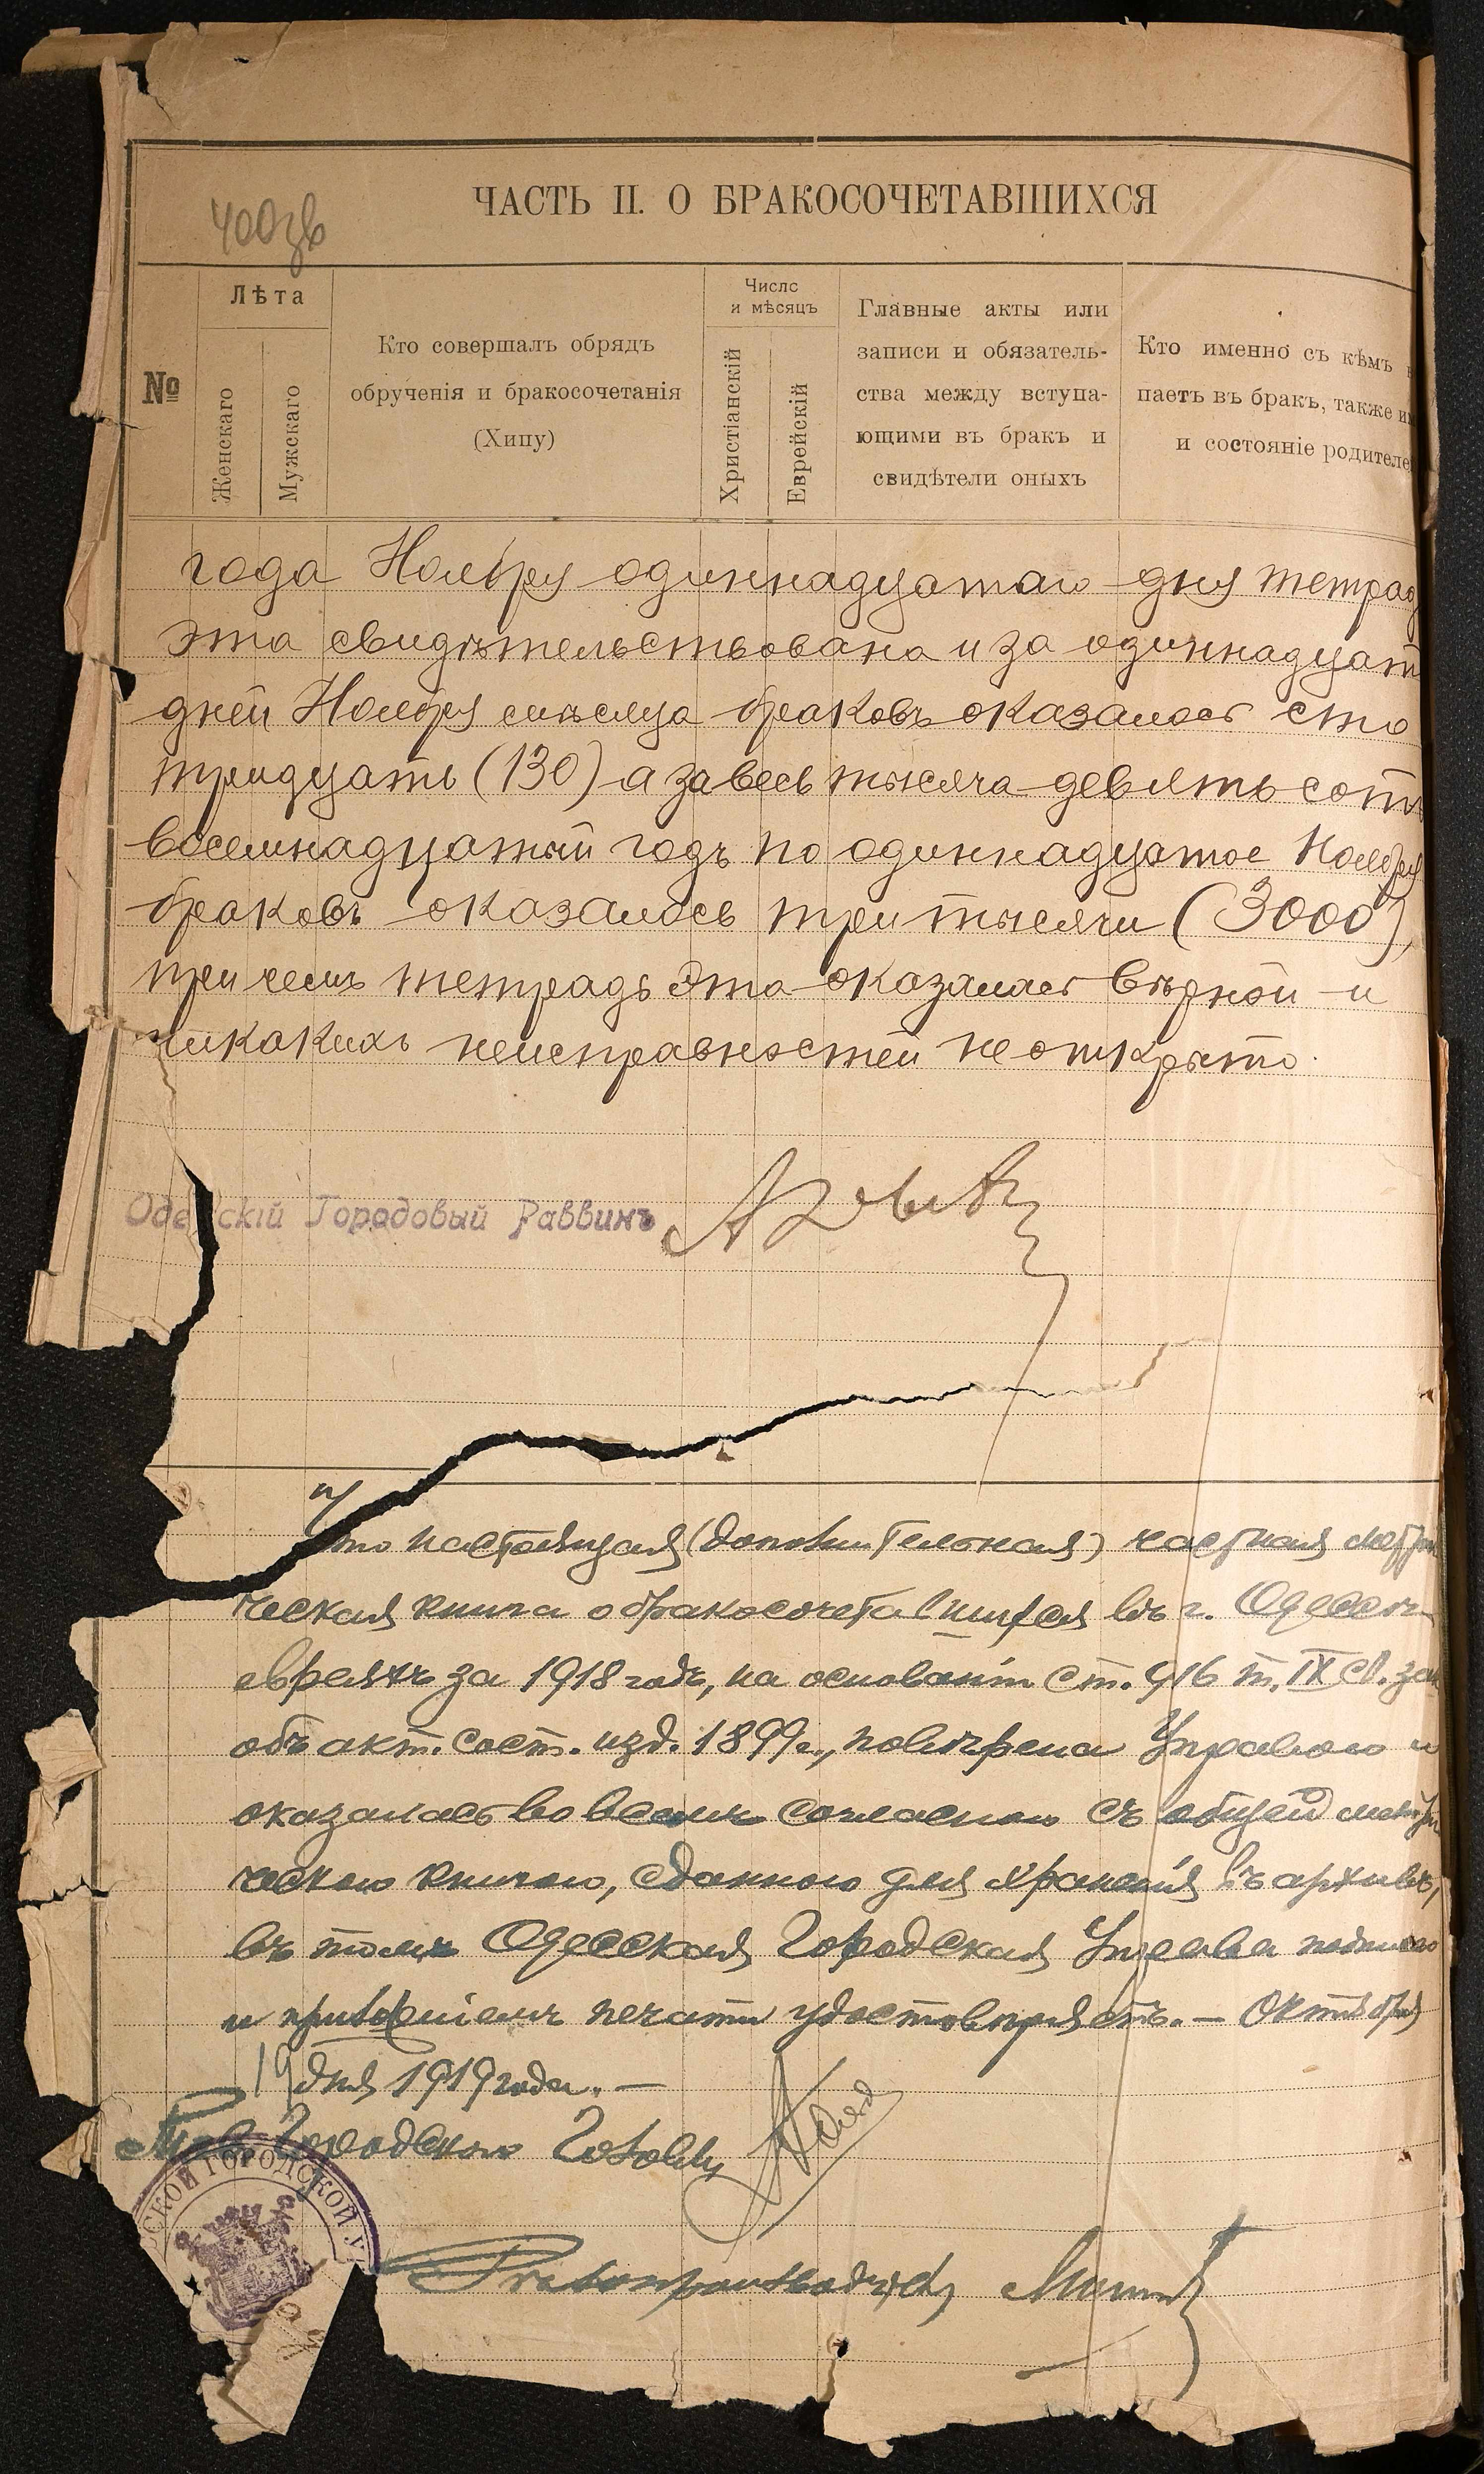 ЧАСТЬ II. О БРАКОСОЧЕТАВШИХСЯ
№
Лѣта
Женскаго
Мужскаго
Кто совершалъ обрядъ
обрученія и бракосочетанія
(Хипу)
Число
и мѣсяцъ
Христіанскій
Еврейскій
Главные акты или
записи и обязатель-
ства между вступа-
ющими въ бракъ и
свидѣтели оныхъ
Кто именно съ кѣмъ в
паетъ въ бракъ, также им
и состояніе родителе
года Ноября одиннадцатаго дня тетрад
эта свидѣтельствована и за одиннадцат
дней Ноября мѣсяца браковъ оказалось сто
тридцать (130) а за весь тысяча девять сотъ
восемнадцатый годъ по одиннадцатое Ноября
браковъ оказалось три тысячи (3000),
при чемъ тетрадь эта оказалась вѣрной и
никакихъ неисправностей не открыто.
Одесскій Городовый Раввинъ
Что настоящая (дополнительная) частная метри
ческая книга о бракосочетавшихся въ г. Одессѣ
евреяхъ за 1918 годъ, на основаніи ст. 916 т. IX св. зак
объ акт. сост. изд. 1899 г., повѣрена Управою и
оказалась во всемъ согласною съ общей метри
ческою книгою, сданною для храненія въ архивъ,
въ томъ Одесская Городская Управа подписью
и приложеніемъ печати удостовѣряетъ. — Октября
19 дня 1919 года. —
Городского Головы
СКОЙ ГОРОДСКОЙ У